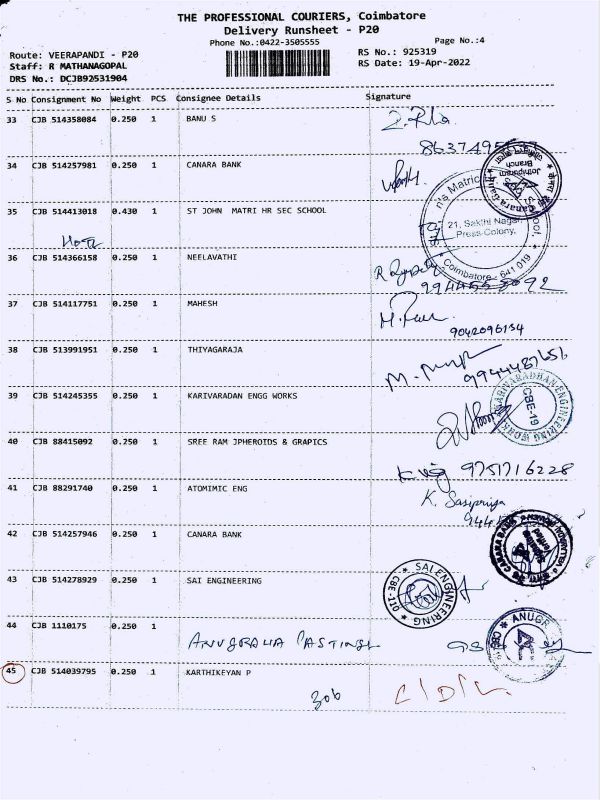 THE PROFESSIONAL COURIERS, Coimbatore
Delivery Runsheet - P20
Phone No.:0422-3505555
Page No.:4
Route: VEERAPANDI - P20
RS No.: 925319
Staff: R MATHANAGOPAL
RS Date: 19-Apr-2022
DRS No.: DCJB92531904
S No Consignment No Weight PCS Consignee Details Signature
33 CJB 514358084 0.250 1 BANU S
34 CJB 514257981 0.250 1 CANARA BANK
Jothipuram
Branch
35 CJB 514413018 0.430 1 ST JOHN MATRI HR SEC SCHOOL
21, Sakthi Nagar,
Press-Colony,
Coimbatore - 641 019
36 CJB 514366158 0.250 1 NEELAVATHI
37 CJB 514117751 0.250 1 MAHESH
9042096154
38 CJB 513991951 0.250 1 THIYAGARAJA
9944487651
39 CJB 514245355 0.250 1 KARIVARADAN ENGG WORKS
KARIVARADHAN ENGINEERING WORKS
CBE-19
40 CJB 88415092 0.250 1 SREE RAM JPHEROIDS & GRAPICS
9751716228
41 CJB 88291740 0.250 1 ATOMIMIC ENG
K. Sasipriya
42 CJB 514257946 0.250 1 CANARA BANK
CANARA BANK
43 CJB 514278929 0.250 1 SAI ENGINEERING
SAI ENGINEERING
44 CJB 1110175 0.250 1
ANUGRAHA CASTINGS
45 CJB 514039795 0.250 1 KARTHIKEYAN P